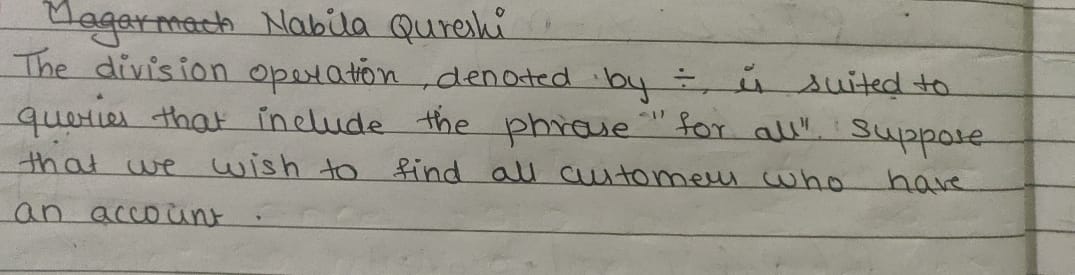 Magarmach Nabila Qureshi
The division operation, denoted by ÷, is suited to
queries that include the phrase "for all". Suppose
that we wish to find all customers who have
an account.